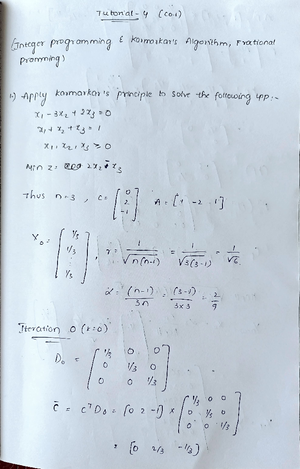 Tutorial-4 (CO.1)
(Integer programming & karmarkar's Algorithm, Frational
pramming)
1) Apply karmarkar's principle to solve the following LPP:-
x1 - 3x2 + 2x3 = 0
x1 + x2 + x3 = 1
x1, x2, x3 ≥ 0
Min z = 2x2 - x3
Thus n=3, c = [0 2 -1] A = [1 -2 1]
X0 = [1/3 1/3 1/3], r = 1/√n(n-1) = 1/√3(3-1) = 1/√6
α = (n-1)/3n = (3-1)/3x3 = 2/9
Iteration 0 (r=0)
D0 = [1/3 0 0
0 1/3 0
0 0 1/3]
C̄ = c^T D0 = [0 2 -1] × [1/3 0 0
0 1/3 0
0 0 1/3]
= [0 2/3 -1/3]